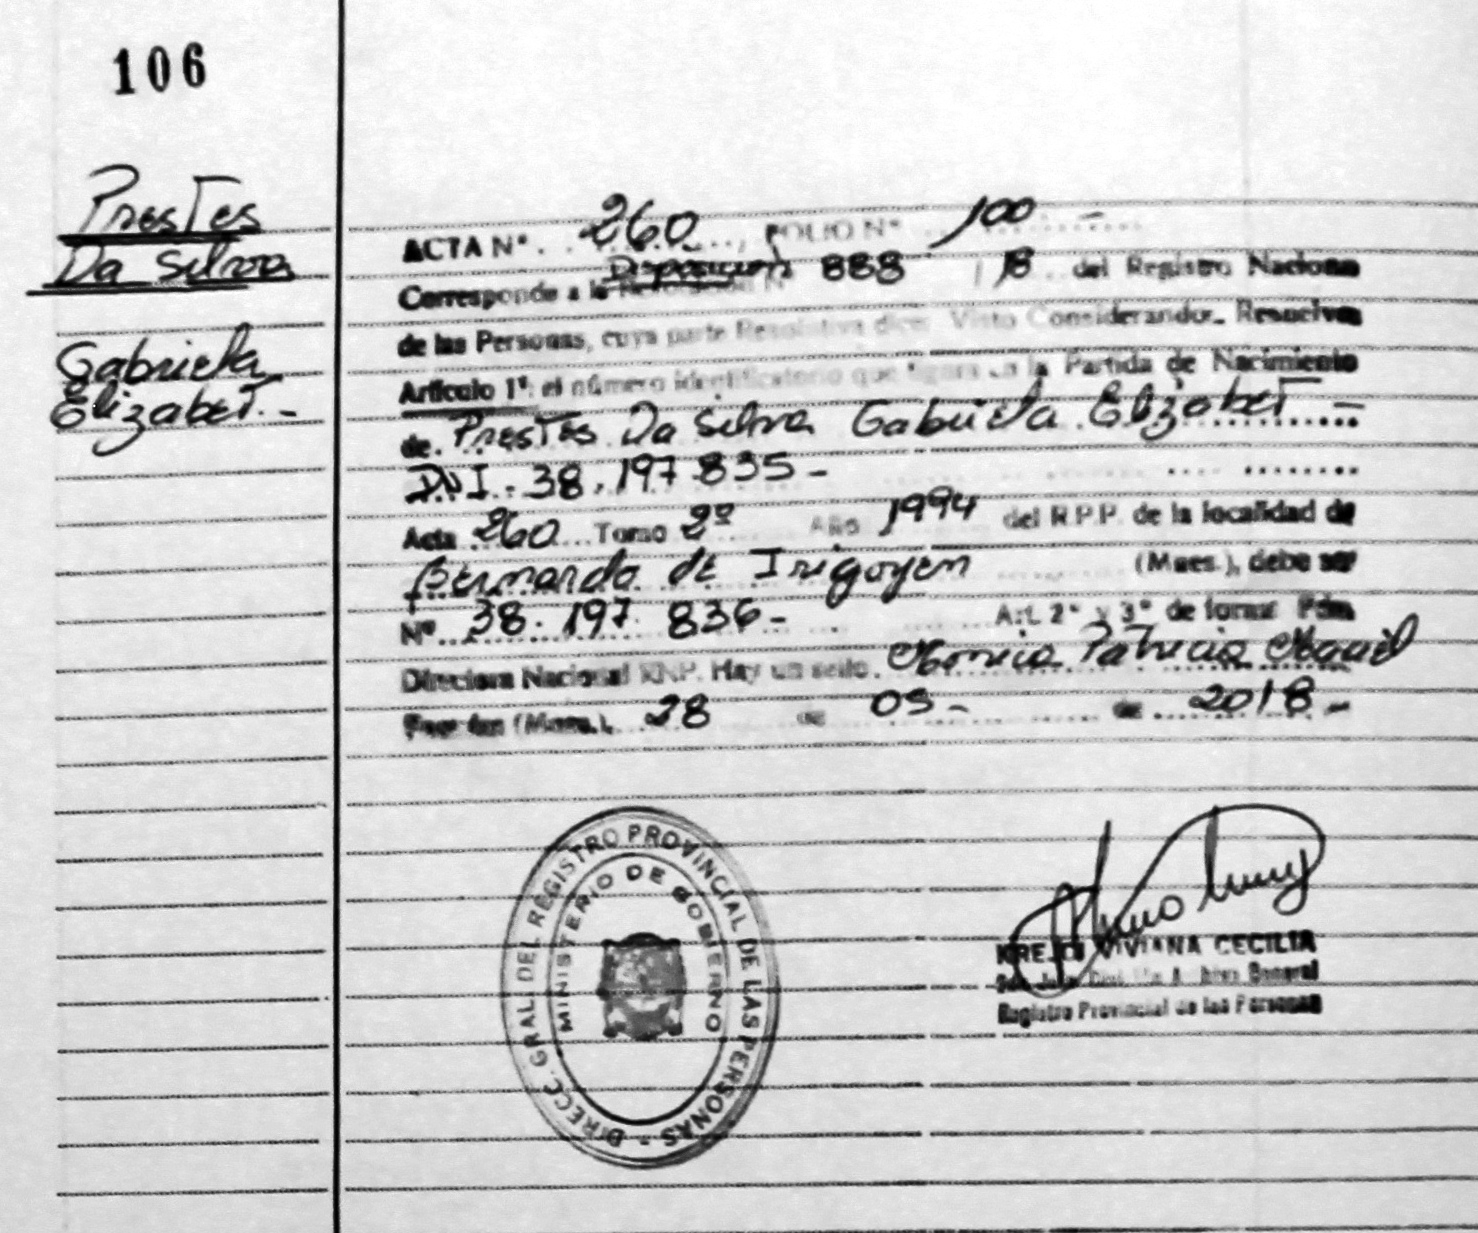 106
Prestes
Da Silva
Gabriela
Elizabet.-
ACTA Nº. 260, FOLIO Nº 100 -
Disposicion
Corresponde a la Resolución Nº 888 / 18 del Registro Naciona
de las Personas, cuya parte Resolutiva dice: Visto Considerando:. Resuelve
Artículo 1º: el número identificatorio que figura en la Partida de Nacimiento
de. Prestes Da Silva Gabriela Elizabet -
DNI. 38.197.835-
Acta 260 Tomo 2º Año 1994 del R.P.P. de la localidad de
Bernardo de Irigoyen (Mnes.), debe ser
Nº 38.197.836- Art. 2º y 3º de forma: Fdo.
Directora Nacional RNP. Hay un sello. Monica Patricia
(Mnes.), 28 de 05- de 2018-
DIRECC. GRAL. DEL REGISTRO PROVINCIAL DE LAS PERSONAS -
MINISTERIO DE GOBIERNO
VIVIANA CECILIA
General
Registro Provincial de las Personas